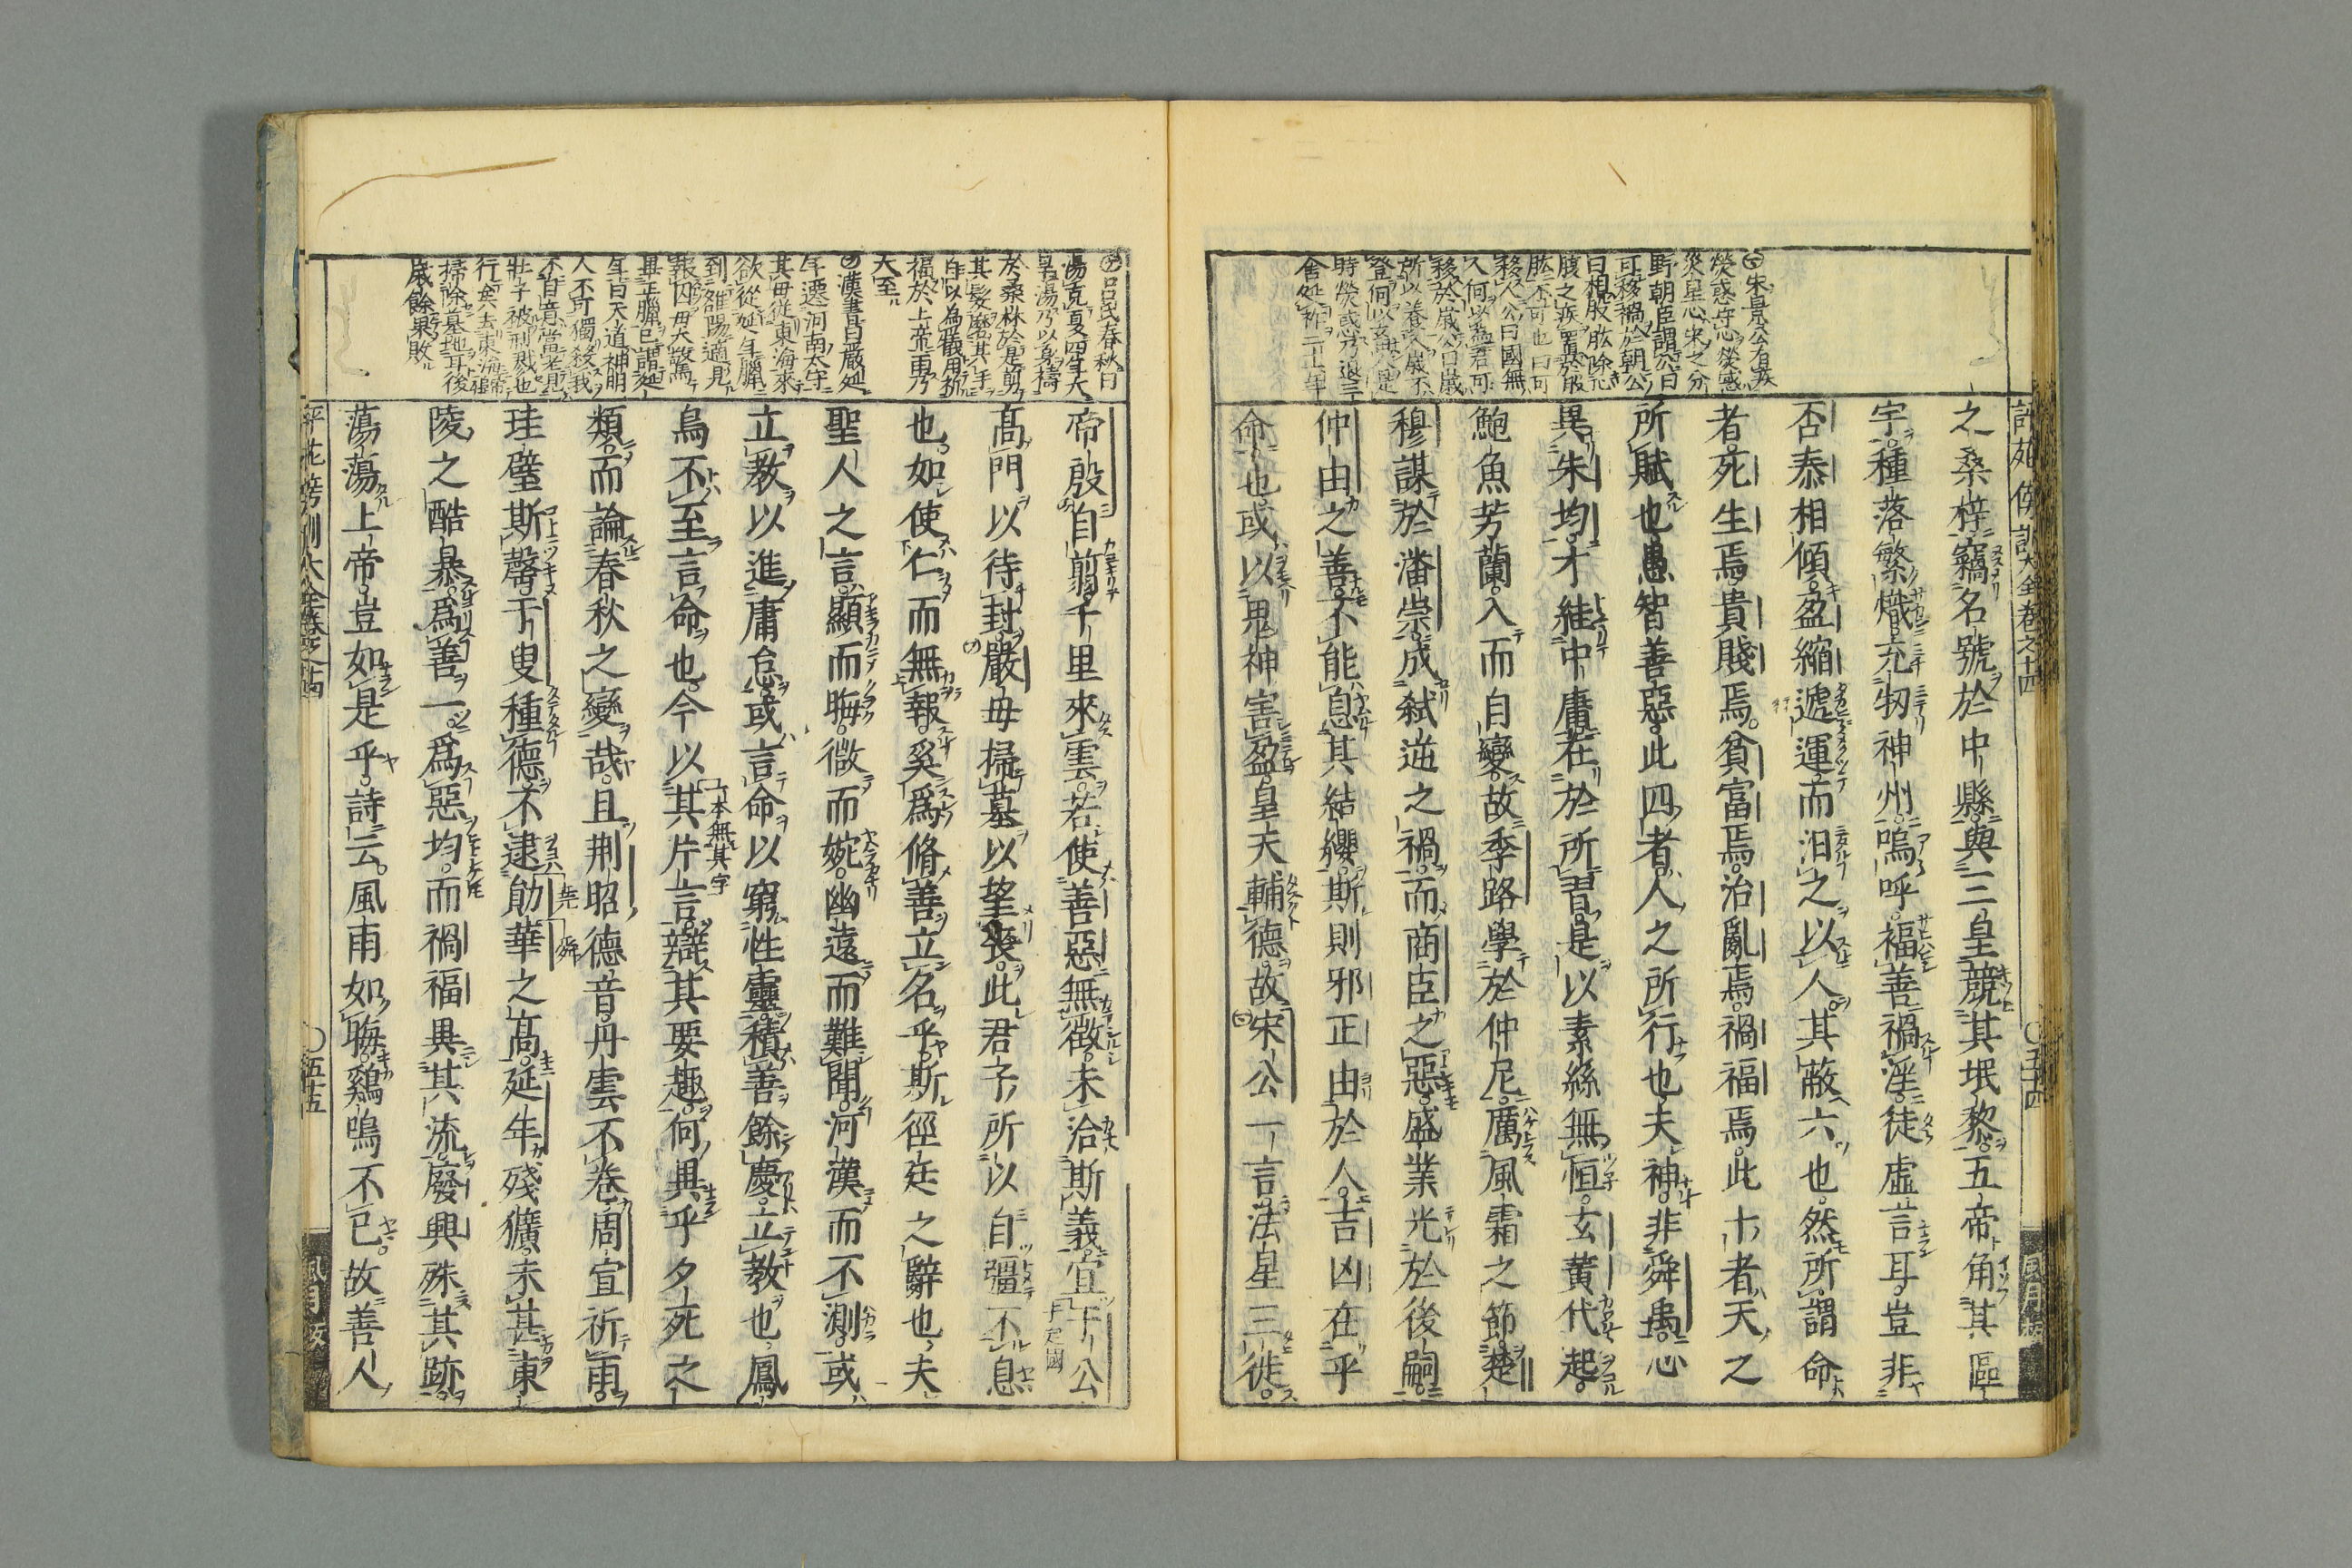 評苑傍訓大全卷之十四
〇五十四
宋景公有疾
熒惑守心熒惑
災星心宋之分
野朝臣謂公曰
可移禍於朝公
曰相股肱除心
腹之疾置於股
肱不可也曰可
移人公曰國無
人何以爲君可
移於歲公曰歲
所以養人歲不
登何以畜民是
時熒惑乃退三
舍延祚二十七年
之桑梓竊名號於中縣與三皇競其垊黎五帝角其區
宇種落繁熾充牣神州嗚呼福善禍淫徒虛言耳豈非
否泰相傾盈縮遞運而汨之以人其蔽六也然所謂命
者死生焉貴賤焉貧富焉治亂焉禍福焉此十者天之
所賦也愚智善惡此四者人之所行也夫神非舜禹心
異朱均才絓中庸在於所習是以素絲無恒玄黃代起
鮑魚芳蘭入而自變故季路學於仲尼厲風霜之節楚
穆謀於潘崇成弑逆之禍而商臣之惡盛業光於後嗣
仲由之善不能息其結纓斯則邪正由於人吉凶在乎
命也或以鬼神害盈皇天輔德故宋公一言法星三徙
呂氏春秋曰
湯克夏四年大
旱湯乃以身禱
於桑林於是剪
其髮磨其手
自以為犧用祈
福於上帝雨乃
大至
漢書曰嚴延
年遷河南太守
其母從東海來
欲從延年臘
到雒陽適見
報囚母大驚
畢正臘已謂延
年曰天道神明
人不可獨殺我
不自意當老見
壯子被刑戮也
行矣去東海歸
掃除墓地耳後
歲餘果敗
帝殷自翦千里來雲若使善惡無徵未洽斯義宜于公
高門以待封嚴母掃墓以望喪此君子所以自彊不息
也如使仁而無報奚爲脩善立名乎斯徑廷之辭也夫
聖人之言顯而晦微而婉幽遠而難聞河漢而不測或
立教以進庸怠或言命以窮性靈積善餘慶立教也鳳
鳥不至言命也今以其片言辯其要趣何異乎夕死之
一本無其字
類而論春秋之變哉且荆昭德音丹雲不卷周宣祈雨
珪璧斯罄于叟種德不逮勛華之高延年殘獷未甚東
陵之酷暴爲善一爲惡均而禍福異其流廢興殊其跡
蕩蕩上帝豈如是乎詩云風雨如晦雞鳴不已故善人
〇五十五